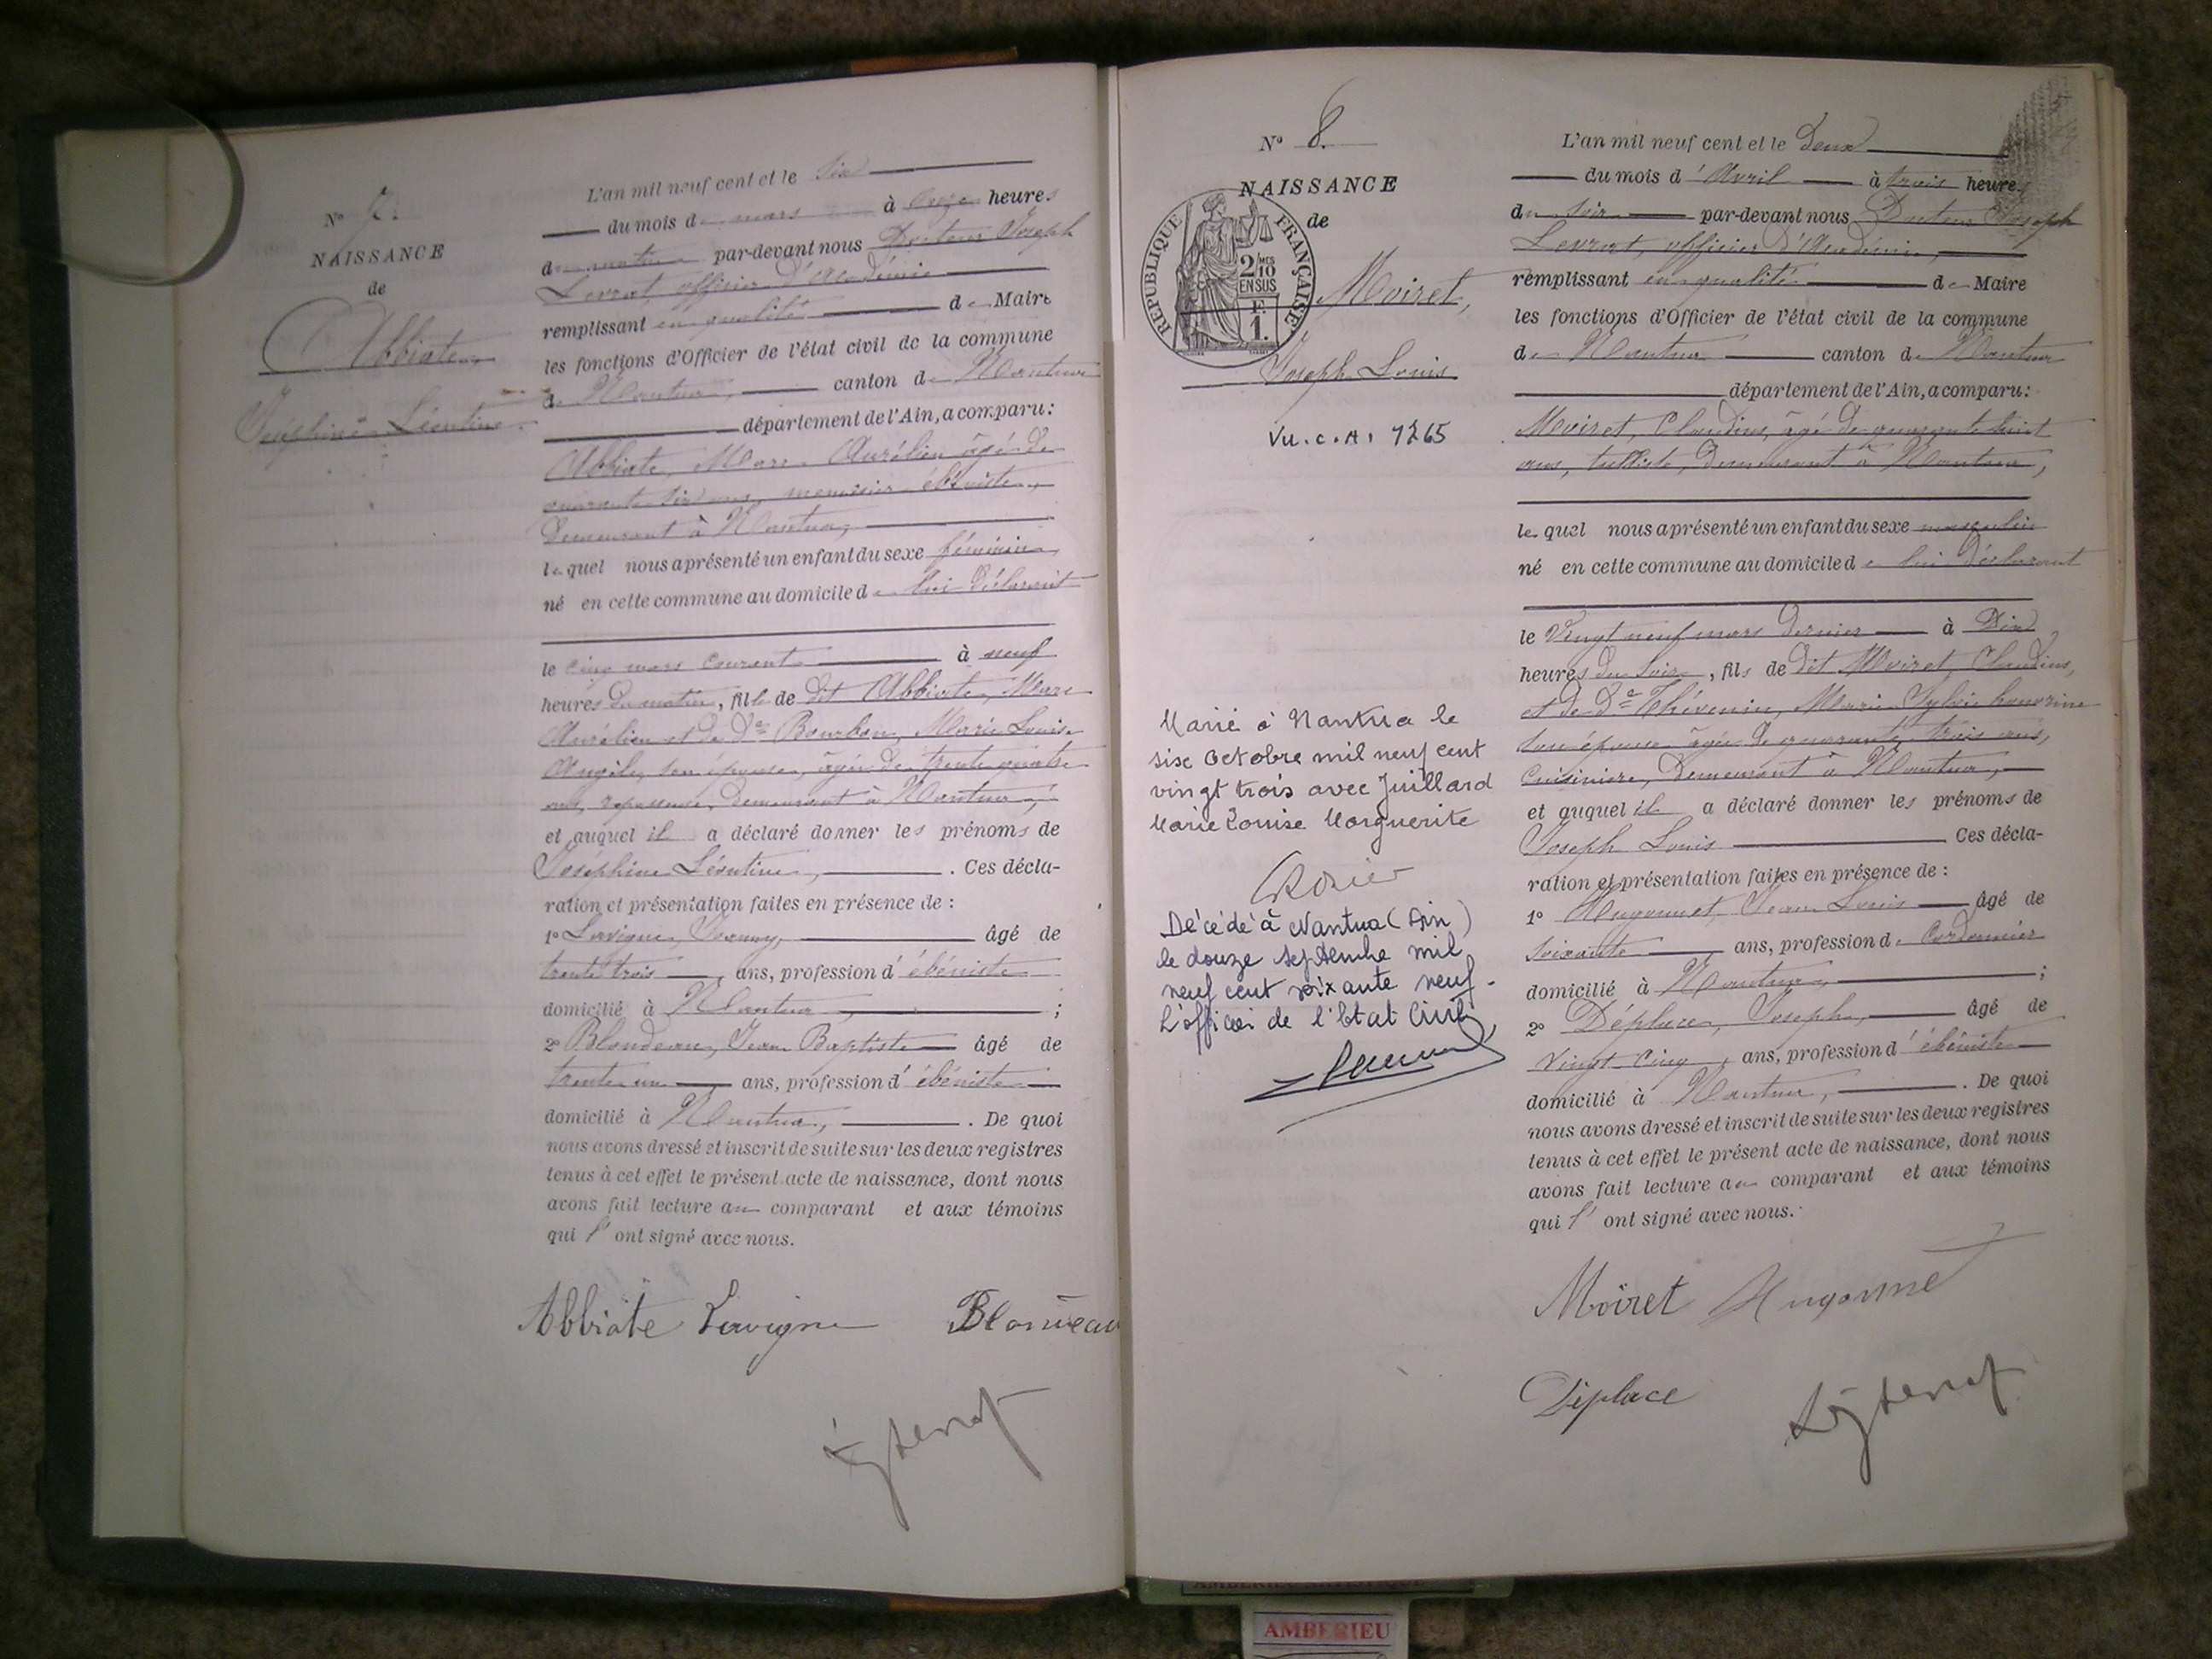 N° 7.
NAISSANCE
de
Abbiate
Joséphine Léontine.
L'an mil neuf cent et le Six
du mois de mars à onze heures
du matin par-devant nous Docteur Joseph
Levrat, officier d'Académie
remplissant en qualité de Maire
les fonctions d'Officier de l'état civil de la commune
de Nantua, canton de Nantua
département de l'Ain, a comparu:
Abbiate, Marc Aurélien âgé de
quarante six ans, menuisier ébéniste,
demeurant à Nantua,
lequel nous a présenté un enfant du sexe féminin
né en cette commune au domicile de lui déclarant
le cinq mars courant à neuf
heures du matin, fille de dit Abbiate, Marc
Aurélien et de De Bourbon, Marie Louise
son épouse, âgée de trente quatre
ans, repasseuse, demeurant à Nantua,
et auquel il a déclaré donner les prénoms de
Joséphine Léontine, . Ces décla-
ration et présentation faites en présence de :
1° Lavigne, Jeanny, âgé de
trente trois , ans, profession d' ébéniste
domicilié à Nantua, ;
2° Blondeau, Jean Baptiste âgé de
trente un ans, profession d' ébéniste
domicilié à Nantua, . De quoi
nous avons dressé et inscrit de suite sur les deux registres
tenus à cet effet le présent acte de naissance, dont nous
avons fait lecture au comparant et aux témoins
qui l' ont signé avec nous.
Abbiate Lavigne Blondeau
N° 8.
NAISSANCE
de
REPUBLIQUE FRANÇAISE
2/10 MES
EN SUS
F.
1.
Moiret,
Joseph Louis
Vu. c. A. 1265
Marié à Nantua le
six octobre mil neuf cent
vingt trois avec Juillard
Marie Louise Marguerite
Décédé à Nantua (Ain)
le douze septembre mil
neuf cent soixante neuf.
L'officier de l'Etat Civil,
L'an mil neuf cent et le Deux
du mois d' Avril à trois heures
du soir par-devant nous Docteur Joseph
Levrat, officier d'Académie,
remplissant en qualité de Maire
les fonctions d'Officier de l'état civil de la commune
de Nantua canton de Nantua
département de l'Ain, a comparu:
Moiret, Claudius, âgé de quarante huit
ans, tulliste, demeurant à Nantua,
lequel nous a présenté un enfant du sexe masculin
né en cette commune au domicile de lui déclarant
le Vingt neuf mars dernier à Dix
heures du soir, fils de dit Moiret, Claudius,
et de De Thévenin, Marie Sylvie honorine
son épouse âgée de quarante trois ans,
cuisinière, demeurant à Nantua,
et auquel il a déclaré donner les prénoms de
Joseph Louis Ces décla-
ration et présentation faites en présence de :
1° Hugonnet, Jean Louis âgé de
soixante ans, profession de Cordonnier
domicilié à Nantua, ;
2° Déplace, Joseph, âgé de
vingt cinq , ans, profession d' ébéniste
domicilié à Nantua, . De quoi
nous avons dressé et inscrit de suite sur les deux registres
tenus à cet effet le présent acte de naissance, dont nous
avons fait lecture au comparant et aux témoins
qui l' ont signé avec nous.
Moiret Hugonnet
Déplace
AMBERIEU